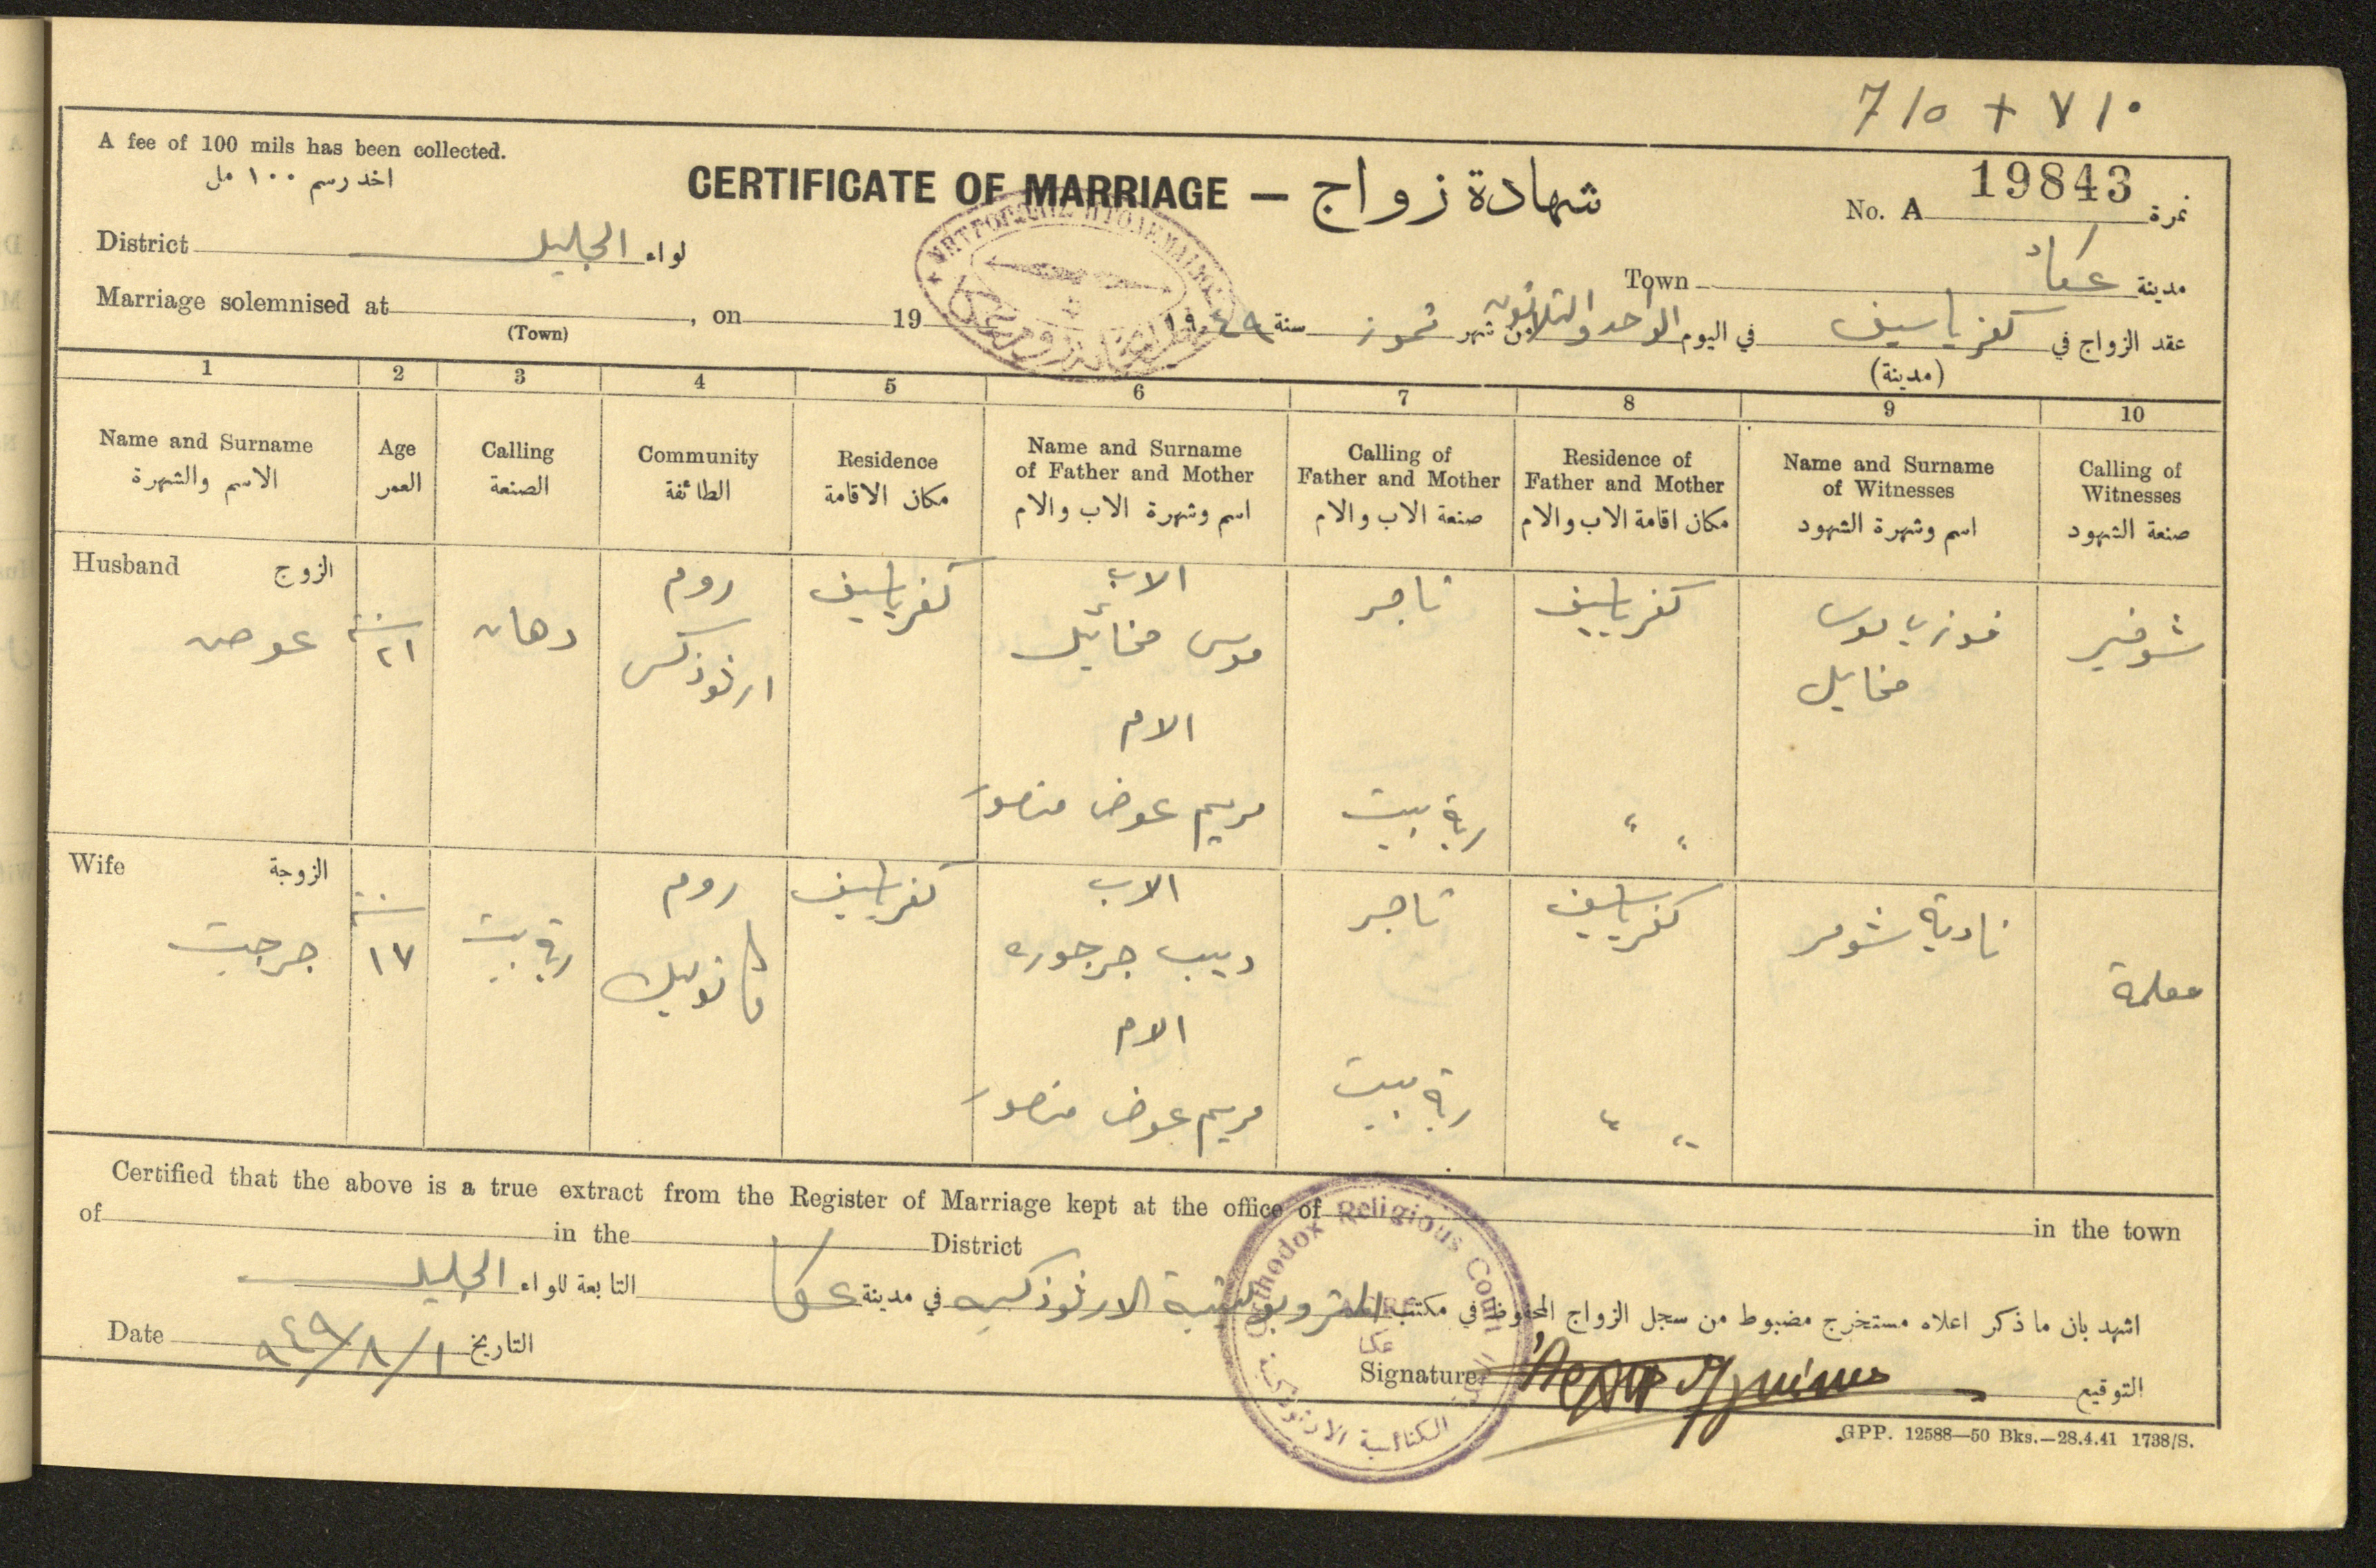 710 + ٧١٠
A fee of 100 mils has been collected.
اخذ رسم ١٠٠ مل
CERTIFICATE OF MARRIAGE — شهادة زواج
No. A 19843 نمرة
District الجليل لواء
Town عكا مدينة
Marriage solemnised at , on 19
(Town)
عقد الزواج في كفرياسيف في اليوم الواحد والثلاثون من شهر تموز سنة ١٩٤٩
(مدينة)
1 2 3 4 5 6 7 8 9 10
Name and Surname
الاسم والشهرة
Age
العمر
Calling
الصنعة
Community
الطائفة
Residence
مكان الاقامة
Name and Surname
of Father and Mother
اسم وشهرة الاب والام
Calling of
Father and Mother
صنعة الاب والام
Residence of
Father and Mother
مكان اقامة الاب والام
Name and Surname
of Witnesses
اسم وشهرة الشهود
Calling of
Witnesses
صنعة الشهود
Husband الزوج
عوض
سنة
٢١
دهان
روم
ارثوذكس
كفرياسيف
الاب
موسى مخائيل
الام
مريم عوض منصور
تاجر
ربة بيت
كفرياسيف
" "
فوزي موسى
مخايل
شوفير
Wife الزوجة
جرجيت
سنة
١٧
ربة بيت
روم
كاثوليك
كفرياسيف
الاب
ديب جرجوره
الام
مريم عوض منصور
تاجر
ربة بيت
كفرياسيف
" "
نادية شومر
معلمة
Certified that the above is a true extract from the Register of Marriage kept at the office of in the town
of in the District
اشهد بان ما ذكر اعلاه مستخرج مضبوط من سجل الزواج المحفوظ في مكتب المتروبوليتية الارثوذكسية في مدينة عكا التابعة للواء الجليل
Date ٩٤٩/٨/١ التاريخ
Signature التوقيع
Orthodox Religious Council
ACRE
عكا
الكنائسية الارثوذكسية
GPP. 12588—50 Bks.—28.4.41 1738/S.